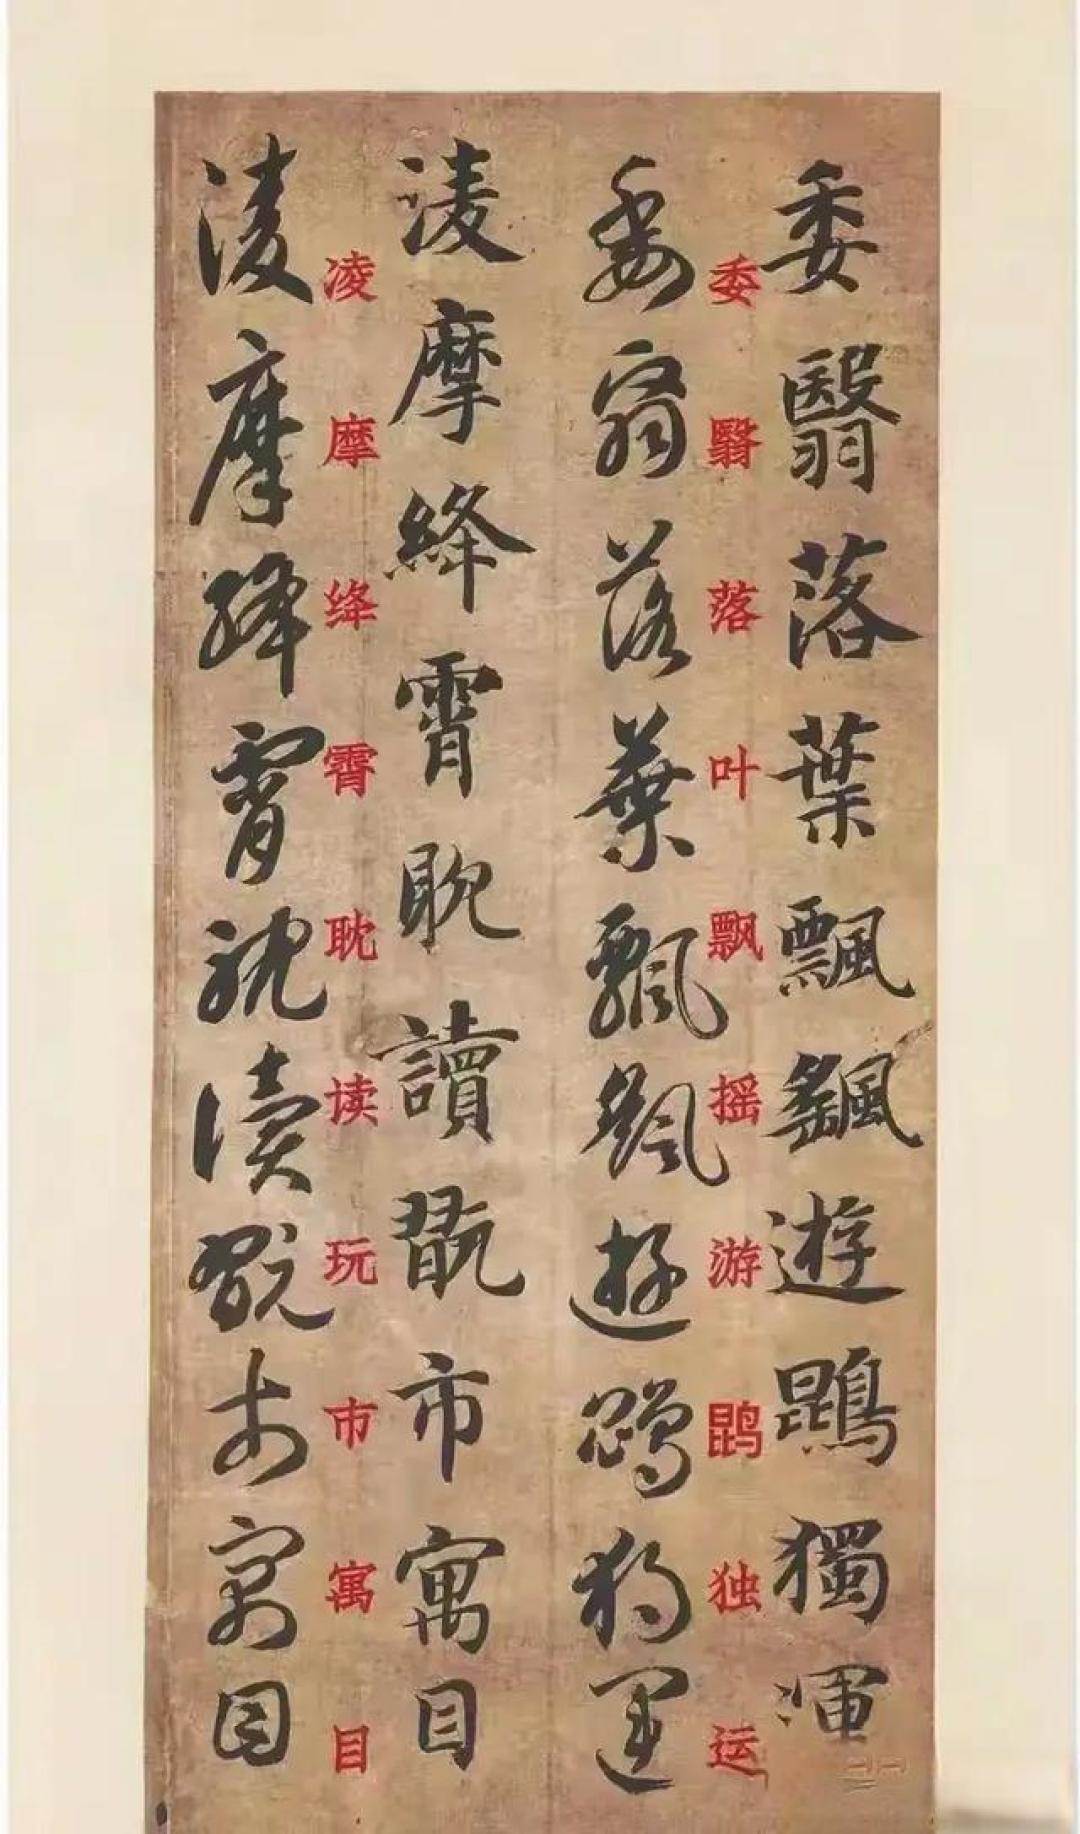 委翳落葉飄颻遊鵾獨運
委翳落叶飘摇游鹍独运
委翳落葉飄颻遊鵾獨運
淩摩絳霄耽讀翫市寓目
凌摩绛霄耽读玩市寓目
淩摩絳霄耽讀翫市寓目